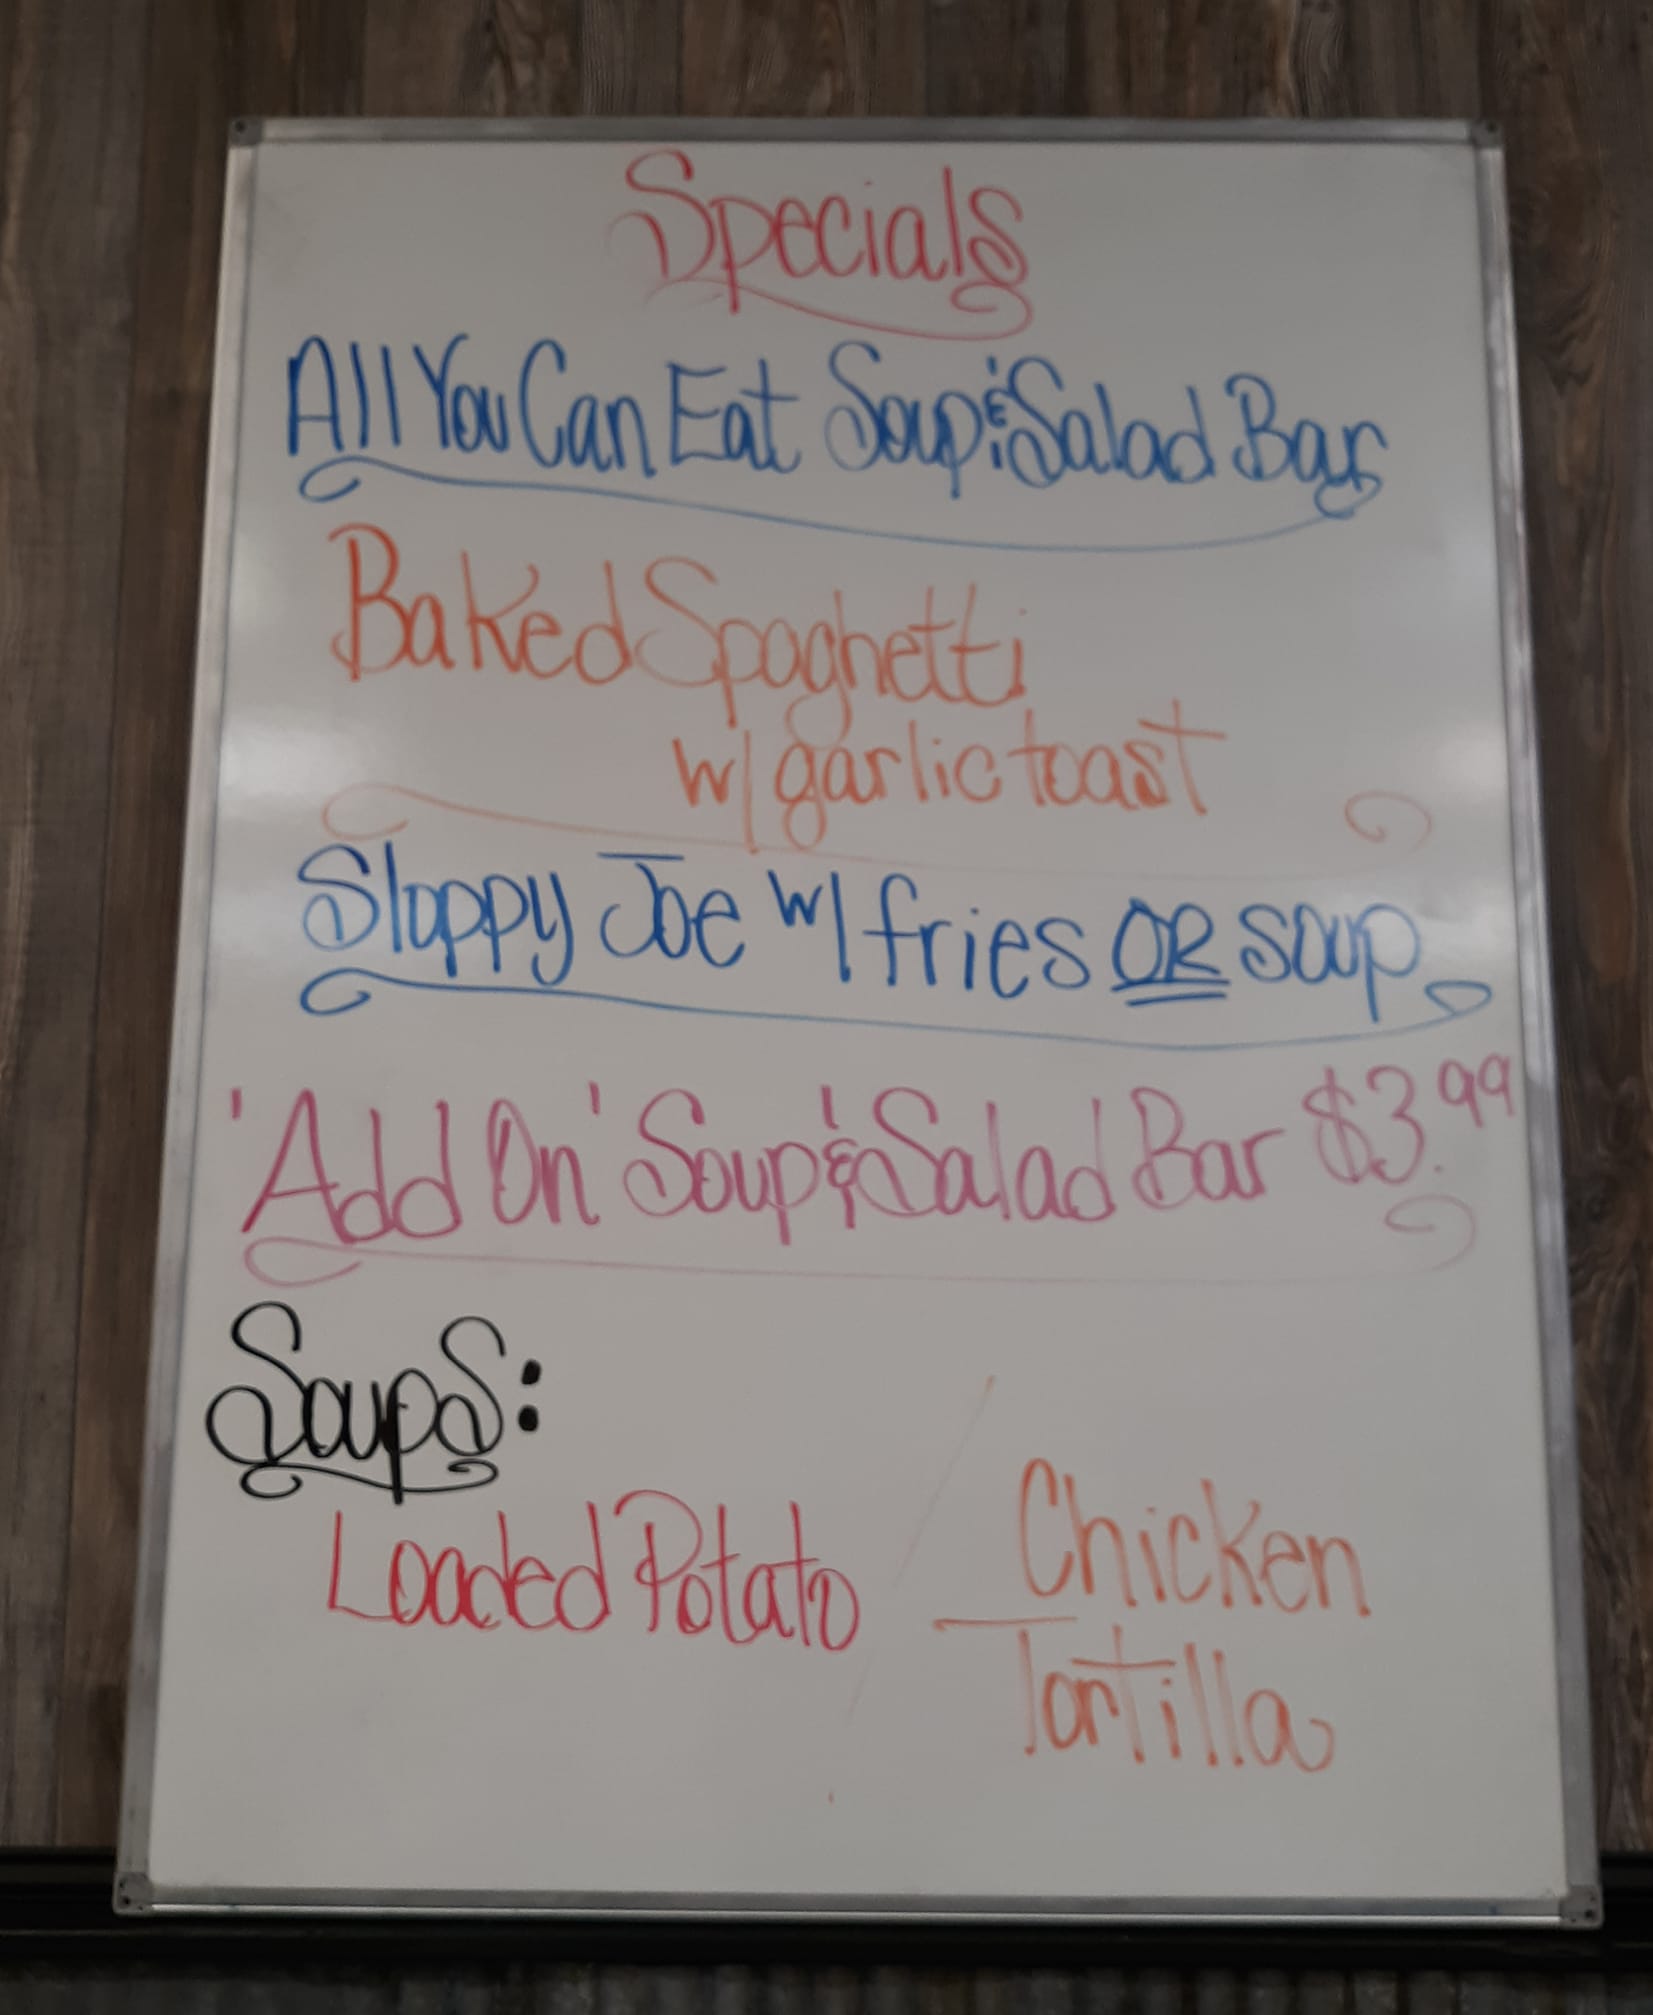 Specials
All You Can Eat Soup & Salad Bar
Baked Spaghetti
w/ garlic toast
Sloppy Joe w/ fries OR soup
'Add On' Soup & Salad Bar $3.99
Soups:
Loaded Potato / Chicken
Tortilla